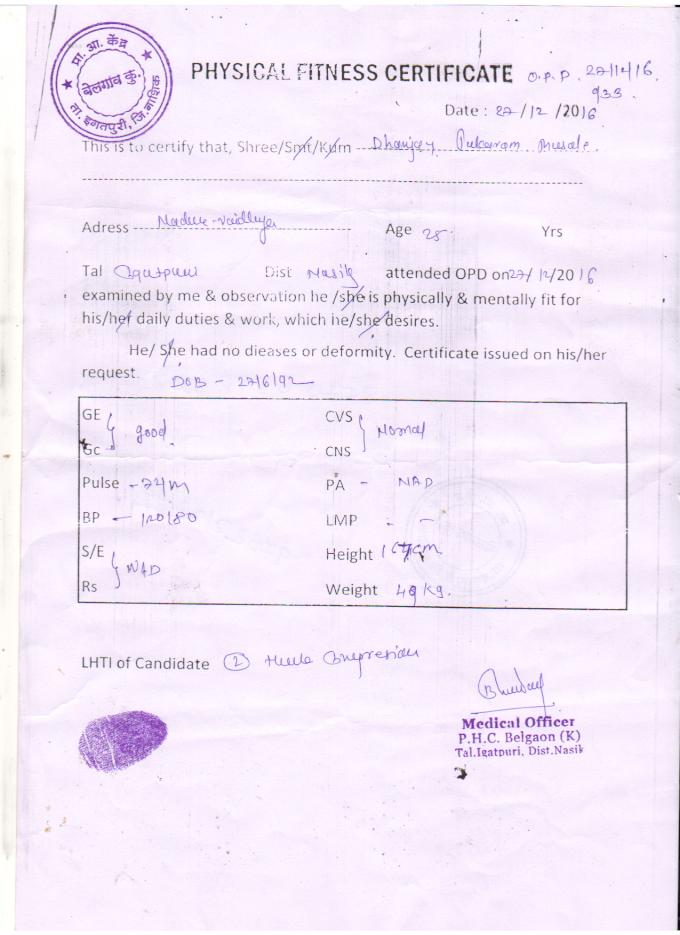 प्रा. आ. केंद्र
बेलगांव कु.
ता. इगतपुरी, जि. नाशिक
PHYSICAL FITNESS CERTIFICATE O.P.D. 27/12/16
933
Date : 27/12/2016
This is to certify that, Shree/Smt/Kum
Adress Age Yrs
Tal Dist Nasik attended OPD on 27/12/2016
examined by me & observation he /she is physically & mentally fit for
his/her daily duties & work, which he/she desires.
He/ She had no dieases or deformity. Certificate issued on his/her
request.
DOB - 27/6/92
GE CVS
good Normal
Gc CNS
Pulse - 74/m PA - NAD
BP - 120/80 LMP - -
S/E Height cm
NAD
Rs Weight 49 Kg.
LHTI of Candidate (2)
Medical Officer
P.H.C. Belgaon (K)
Tal.Igatpuri, Dist.Nasik